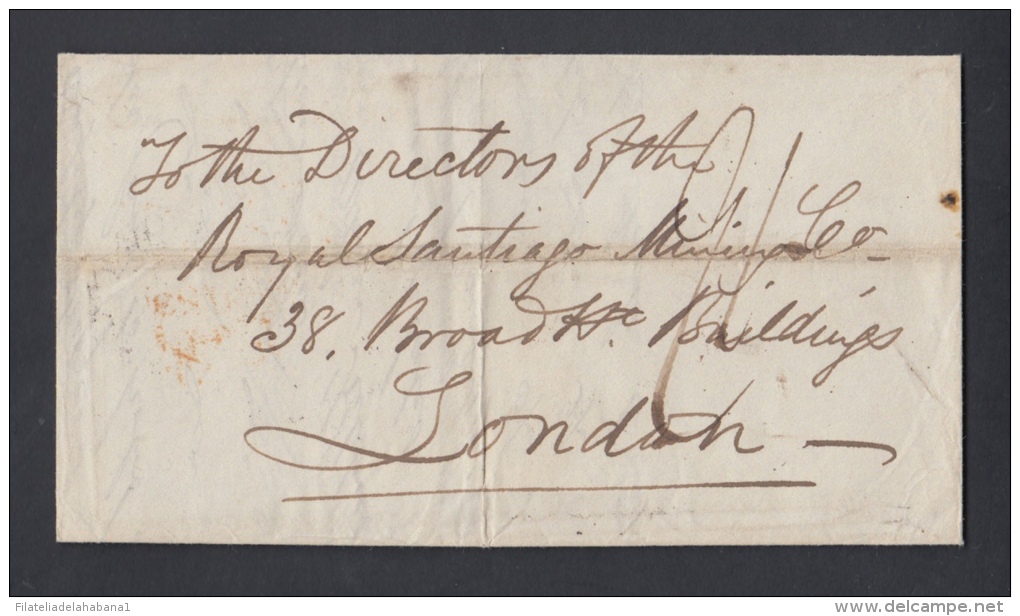 To the Directors of the
Royal Santiago Mining Co
38, Broad St. Buildings
London
Filateliadelahabana1
www.delcampe.net